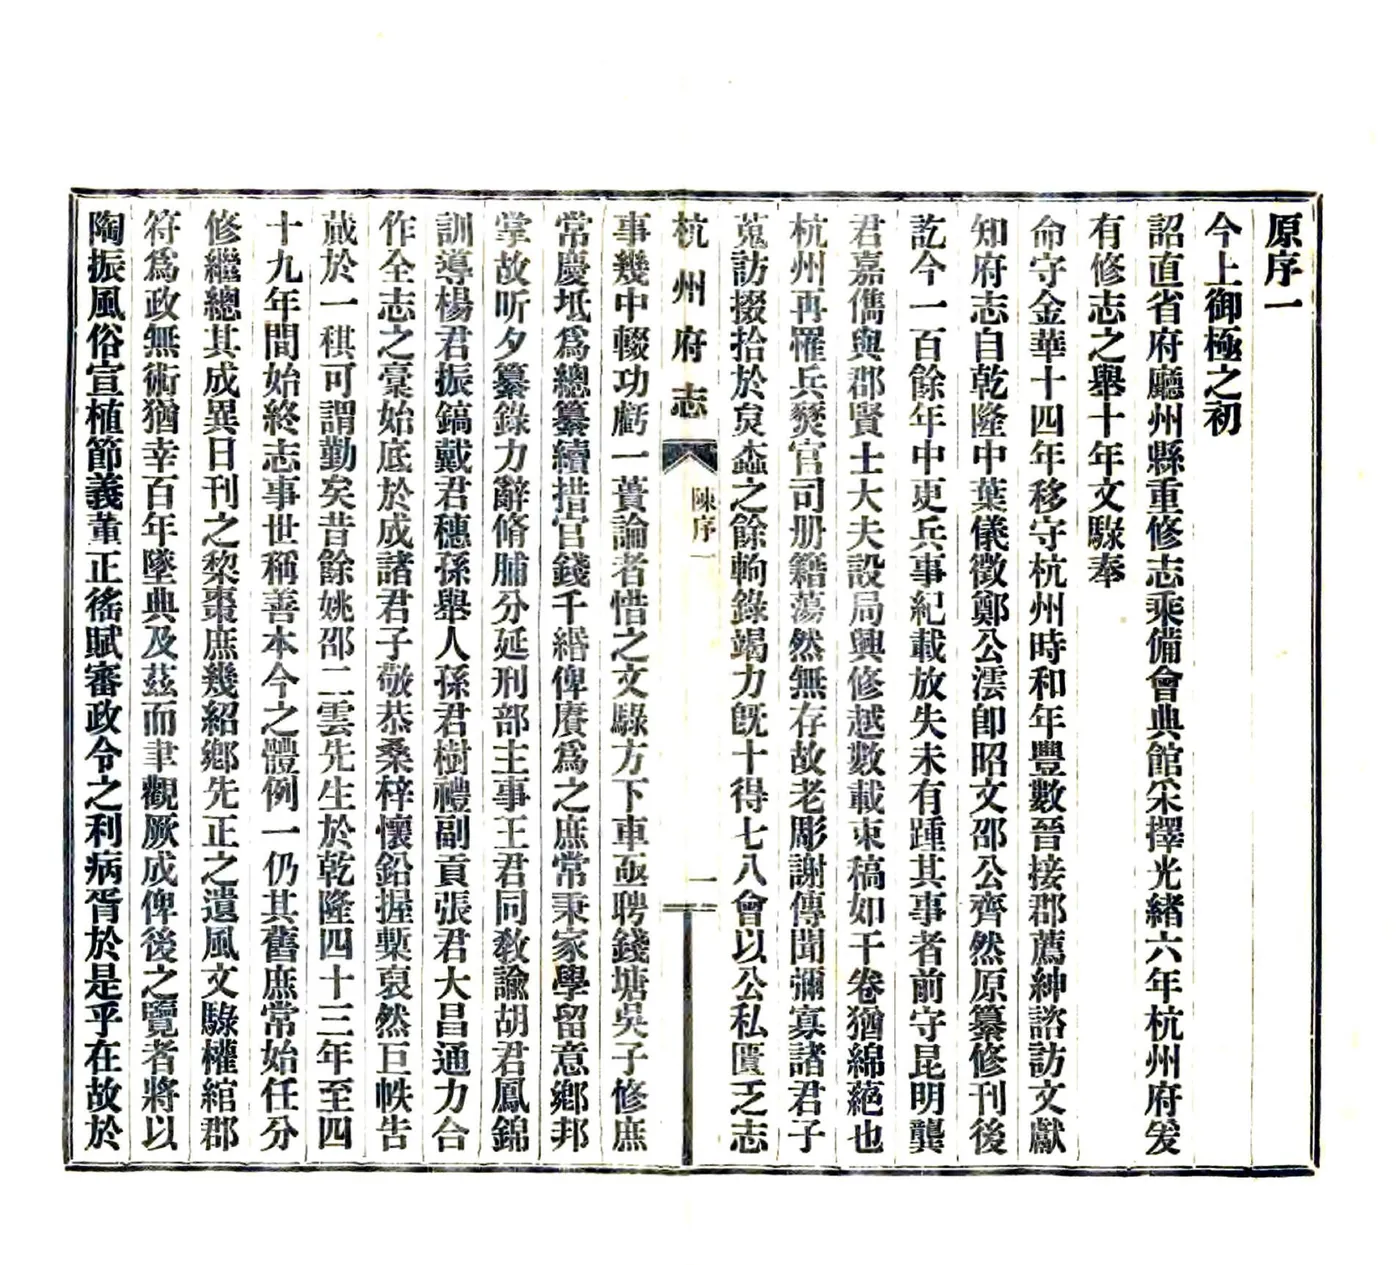 原序一
今上御極之初
詔直省府廳州縣重修志乘備會典館采擇光緒六年杭州府爰
有修志之舉十年文騄奉
命守金華十四年移守杭州時和年豐數晉接郡薦紳諮訪文獻
知府志自乾隆中葉儀徵鄭公澐卽昭文邵公齊然原纂修刊後
訖今一百餘年中更兵事紀載放失未有踵其事者前守昆明龔
君嘉儁與郡賢士大夫設局興修越數載束稿如干卷猶綿蕝也
杭州再罹兵燹官司册籍蕩然無存故老彫謝傳聞彌寡諸君子
蒐訪掇拾於炱蠹之餘鉤錄竭力旣十得七八會以公私匱乏志
杭州府志
陳序一
一
事幾中輟功虧一簣論者惜之文騄方下車亟聘錢塘吳子修庶
常慶坻爲總纂續措官錢千緡俾賡爲之庶常秉家學留意鄕邦
掌故昕夕纂錄力辭脩脯分延刑部主事王君同敎諭胡君鳳錦
訓導楊君振鎬戴君穗孫舉人孫君樹禮副貢張君大昌通力合
作全志之稾始底於成諸君子敬恭桑梓懷鉛握槧裒然巨帙告
蕆於一稘可謂勤矣昔餘姚邵二雲先生於乾隆四十三年至四
十九年間始終志事世稱善本今之體例一仍其舊庶常始任分
修繼總其成異日刊之棃棗庶幾紹鄕先正之遺風文騄權綰郡
符爲政無術猶幸百年墜典及茲而聿觀厥成俾後之覽者將以
陶振風俗宣植節義董正徭賦審政令之利病胥於是乎在故於